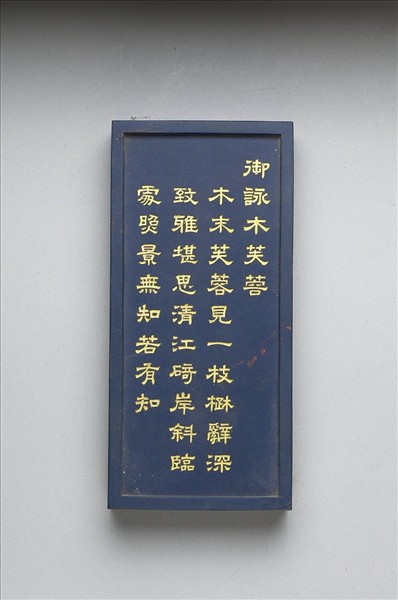 御詠木芙蓉
木末芙蓉見一枝楚辭深
致雅堪思清江碕岸斜臨
處照景無知若有知